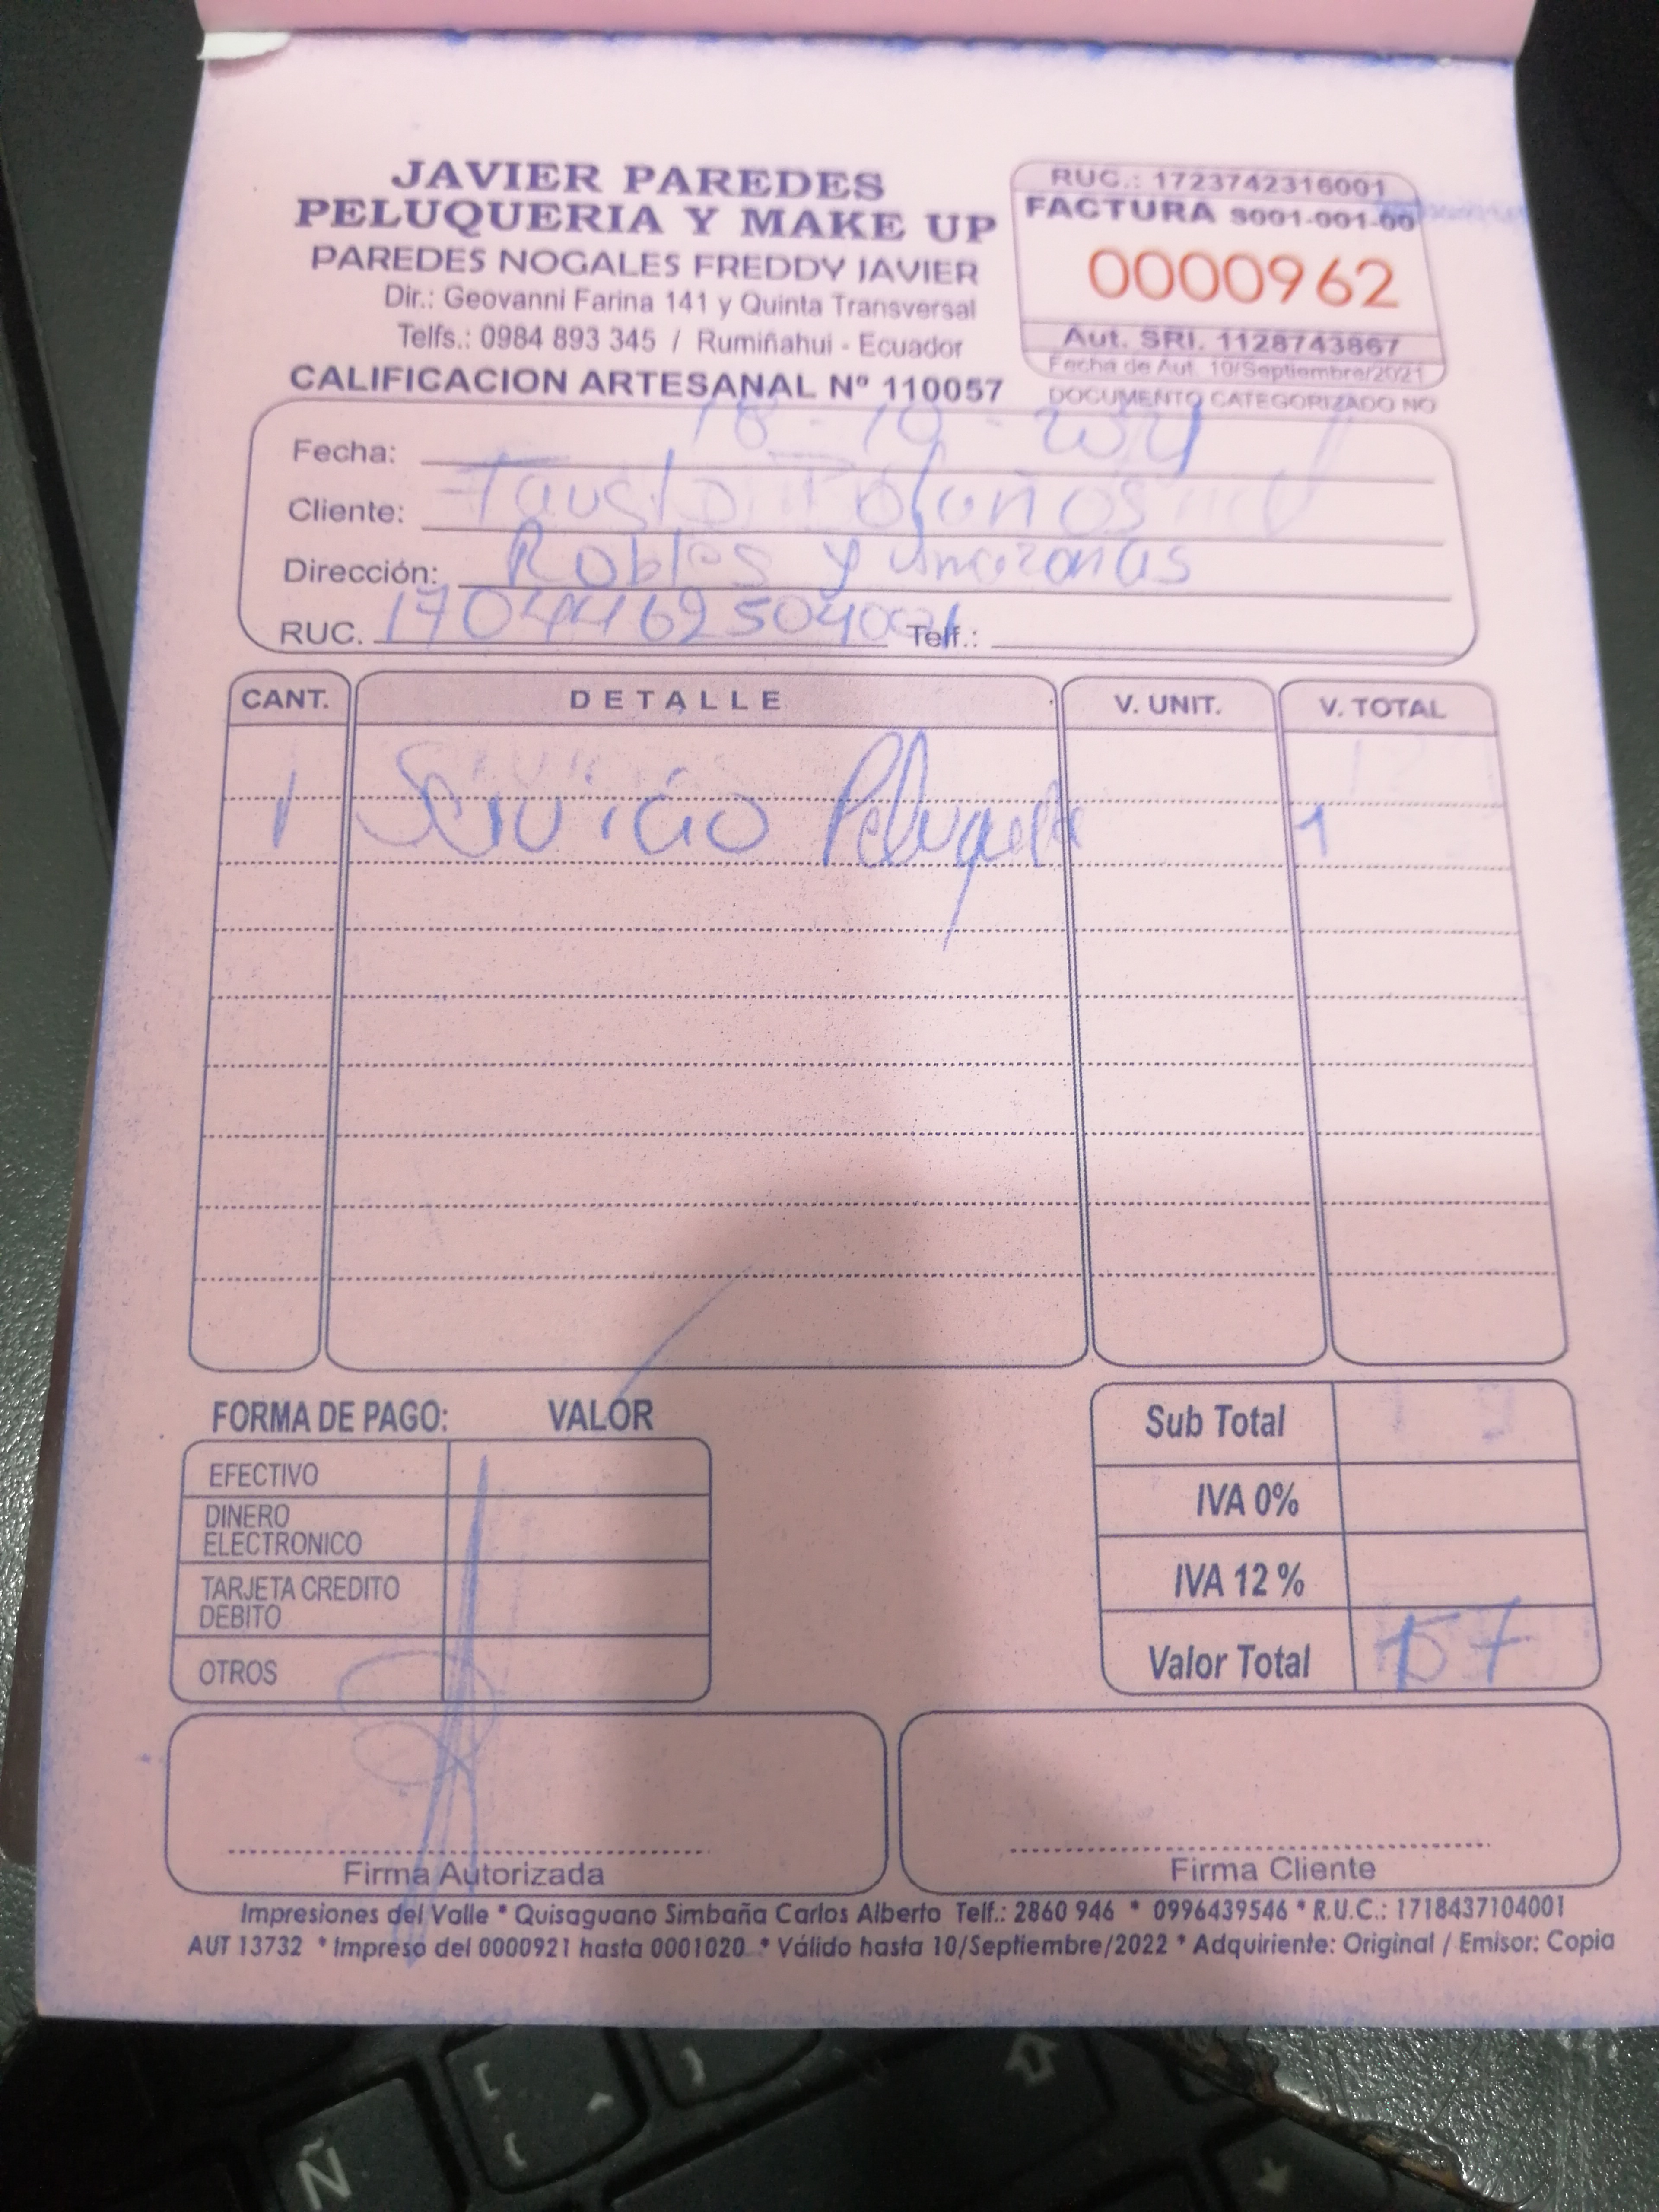 JAVIER PAREDES
PELUQUERIA Y MAKE UP
PAREDES NOGALES FREDDY JAVIER
Dir.: Geovanni Farina 141 y Quinta Transversal
Telfs.: 0984 893 345 / Rumiñahui - Ecuador
CALIFICACION ARTESANAL Nº 110057
RUC.: 1723742316001
FACTURA S001-001-00
0000962
Aut. SRI. 1128743867
Fecha de Aut. 10/Septiembre/2021
DOCUMENTO CATEGORIZADO NO
Fecha: 18 - 10 - 2021
Cliente: Fausto Bolaños
Dirección: Robles y amazonas
RUC. Telf.:
CANT. DETALLE V. UNIT. V. TOTAL
1 Servicio 1
FORMA DE PAGO: VALOR
EFECTIVO
DINERO ELECTRONICO
TARJETA CREDITO DEBITO
OTROS
Sub Total
IVA 0%
IVA 12 %
Valor Total
Firma Autorizada
Firma Cliente
Impresiones del Valle * Quisaguano Simbaña Carlos Alberto Telf.: 2860 946 * 0996439546 * R.U.C.: 1718437104001
AUT 13732 * Impreso del 0000921 hasta 0001020 * Válido hasta 10/Septiembre/2022 * Adquiriente: Original / Emisor: Copia
Ñ